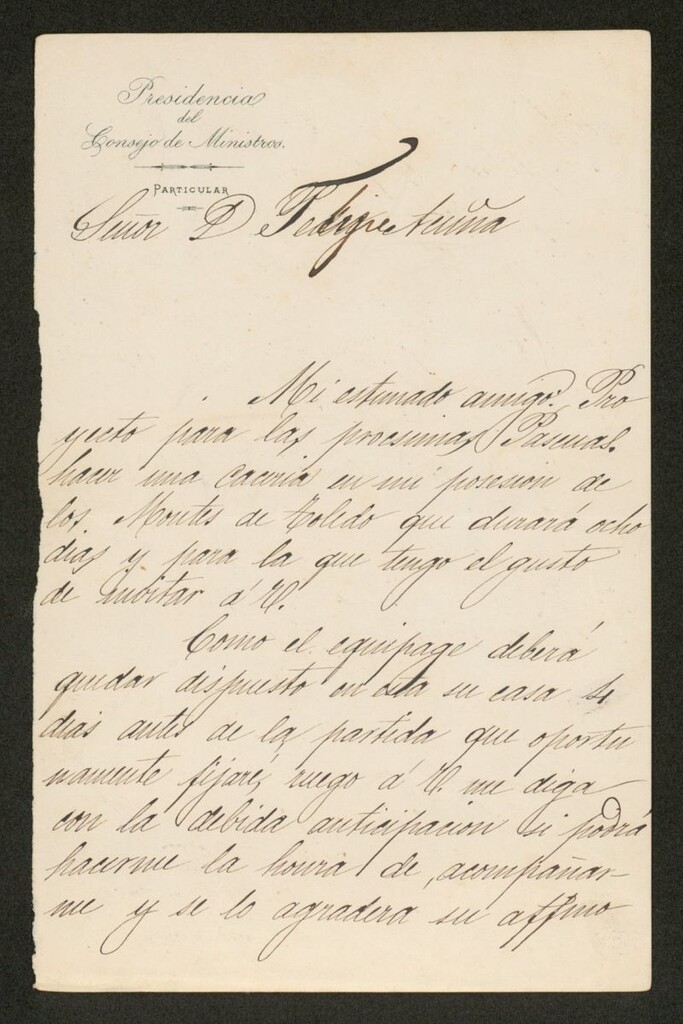 Presidencia
del
Consejo de Ministros.
PARTICULAR
Señor D Felipe Acuña
Mi estimado amigo: Pro
yecto para las procsimas Pascuas.
hacer una caceria en mi posesion de
los Montes de Toledo que durará ocho
dias y para la que tengo el gusto
de invitar á V.
Como el equipage deberá
quedar dispuesto en esta su casa 4
dias antes de la partida que oportu
namente fijaré, ruego á V. me diga
con la debida anticipacion si podrá
hacerme la honra de acompañar-
me y se lo agradera su affmo